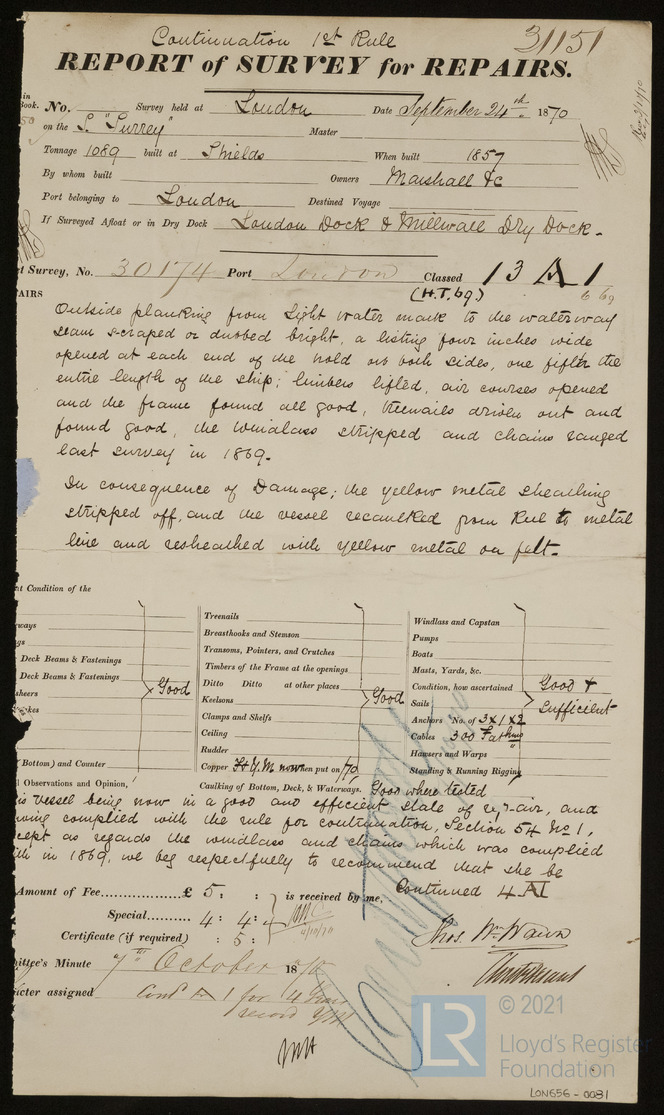 Continuation 1st Rule
31151
REPORT of SURVEY for REPAIRS.
in
Book. No. Survey held at London Date September 24th 1870
on the S. "Surrey" Master
Tonnage 1089 built at Shields When built 1857
By whom built Owners Marshall &c
Port belonging to London Destined Voyage
If Surveyed Afloat or in Dry Dock London Dock & Millwall Dry Dock.
t Survey, No. 30174 Port London Classed 13 A 1
(H.T. 69) 6 69
AIRS
Outside planking from light water mark to the waterway
seam scraped or dubbed bright, a listing four inches wide
opened at each end of the hold on both sides, one fifth the
entire length of the ship; limbers lifted, air courses opened
and the frame found all good, treenails driven out and
found good, the windlass stripped and chains ranged
last survey in 1869.
In consequence of Damage; the yellow metal sheathing
stripped off, and the vessel recaulked from Keel to metal
line and resheathed with yellow metal on felt.
nt Condition of the
ways
gs
Deck Beams & Fastenings
Deck Beams & Fastenings
sheers
kes
Good
Bottom) and Counter
Treenails
Breasthooks and Stemson
Transoms, Pointers, and Crutches
Timbers of the Frame at the openings
Ditto Ditto at other places
Keelsons
Good
Clamps and Shelfs
Ceiling
Rudder
Copper Ft Y.M. now when put on 70
Caulking of Bottom, Deck, & Waterways. Good where tested
Windlass and Capstan
Pumps
Boats
Masts, Yards, &c.
Condition, how ascertained
Good &
Sails
Sufficient
Anchors No. of 3 x 1 x 2
Cables 300 Fathms
Hawsers and Warps
Standing & Running Rigging
l Observations and Opinion,
is vessel being now in a good and efficient state of repair, and
ving complied with the rule for continuation, Section 54 No 1,
cept as regards the windlass and chains which was complied
th in 1869, we beg respectfully to recommend that she be
Continued 4 A1
Amount of Fee £ 5: : is received by me,
Special 4: 4:
4/10/70
Certificate (if required) : 5:
Thos. Wm Wawn
ittee's Minute 7th October 1870
cter assigned Contd A 1 for 4 Years
record Y.M.
© 2021
LR
Lloyd's Register
Foundation
LON656-0031